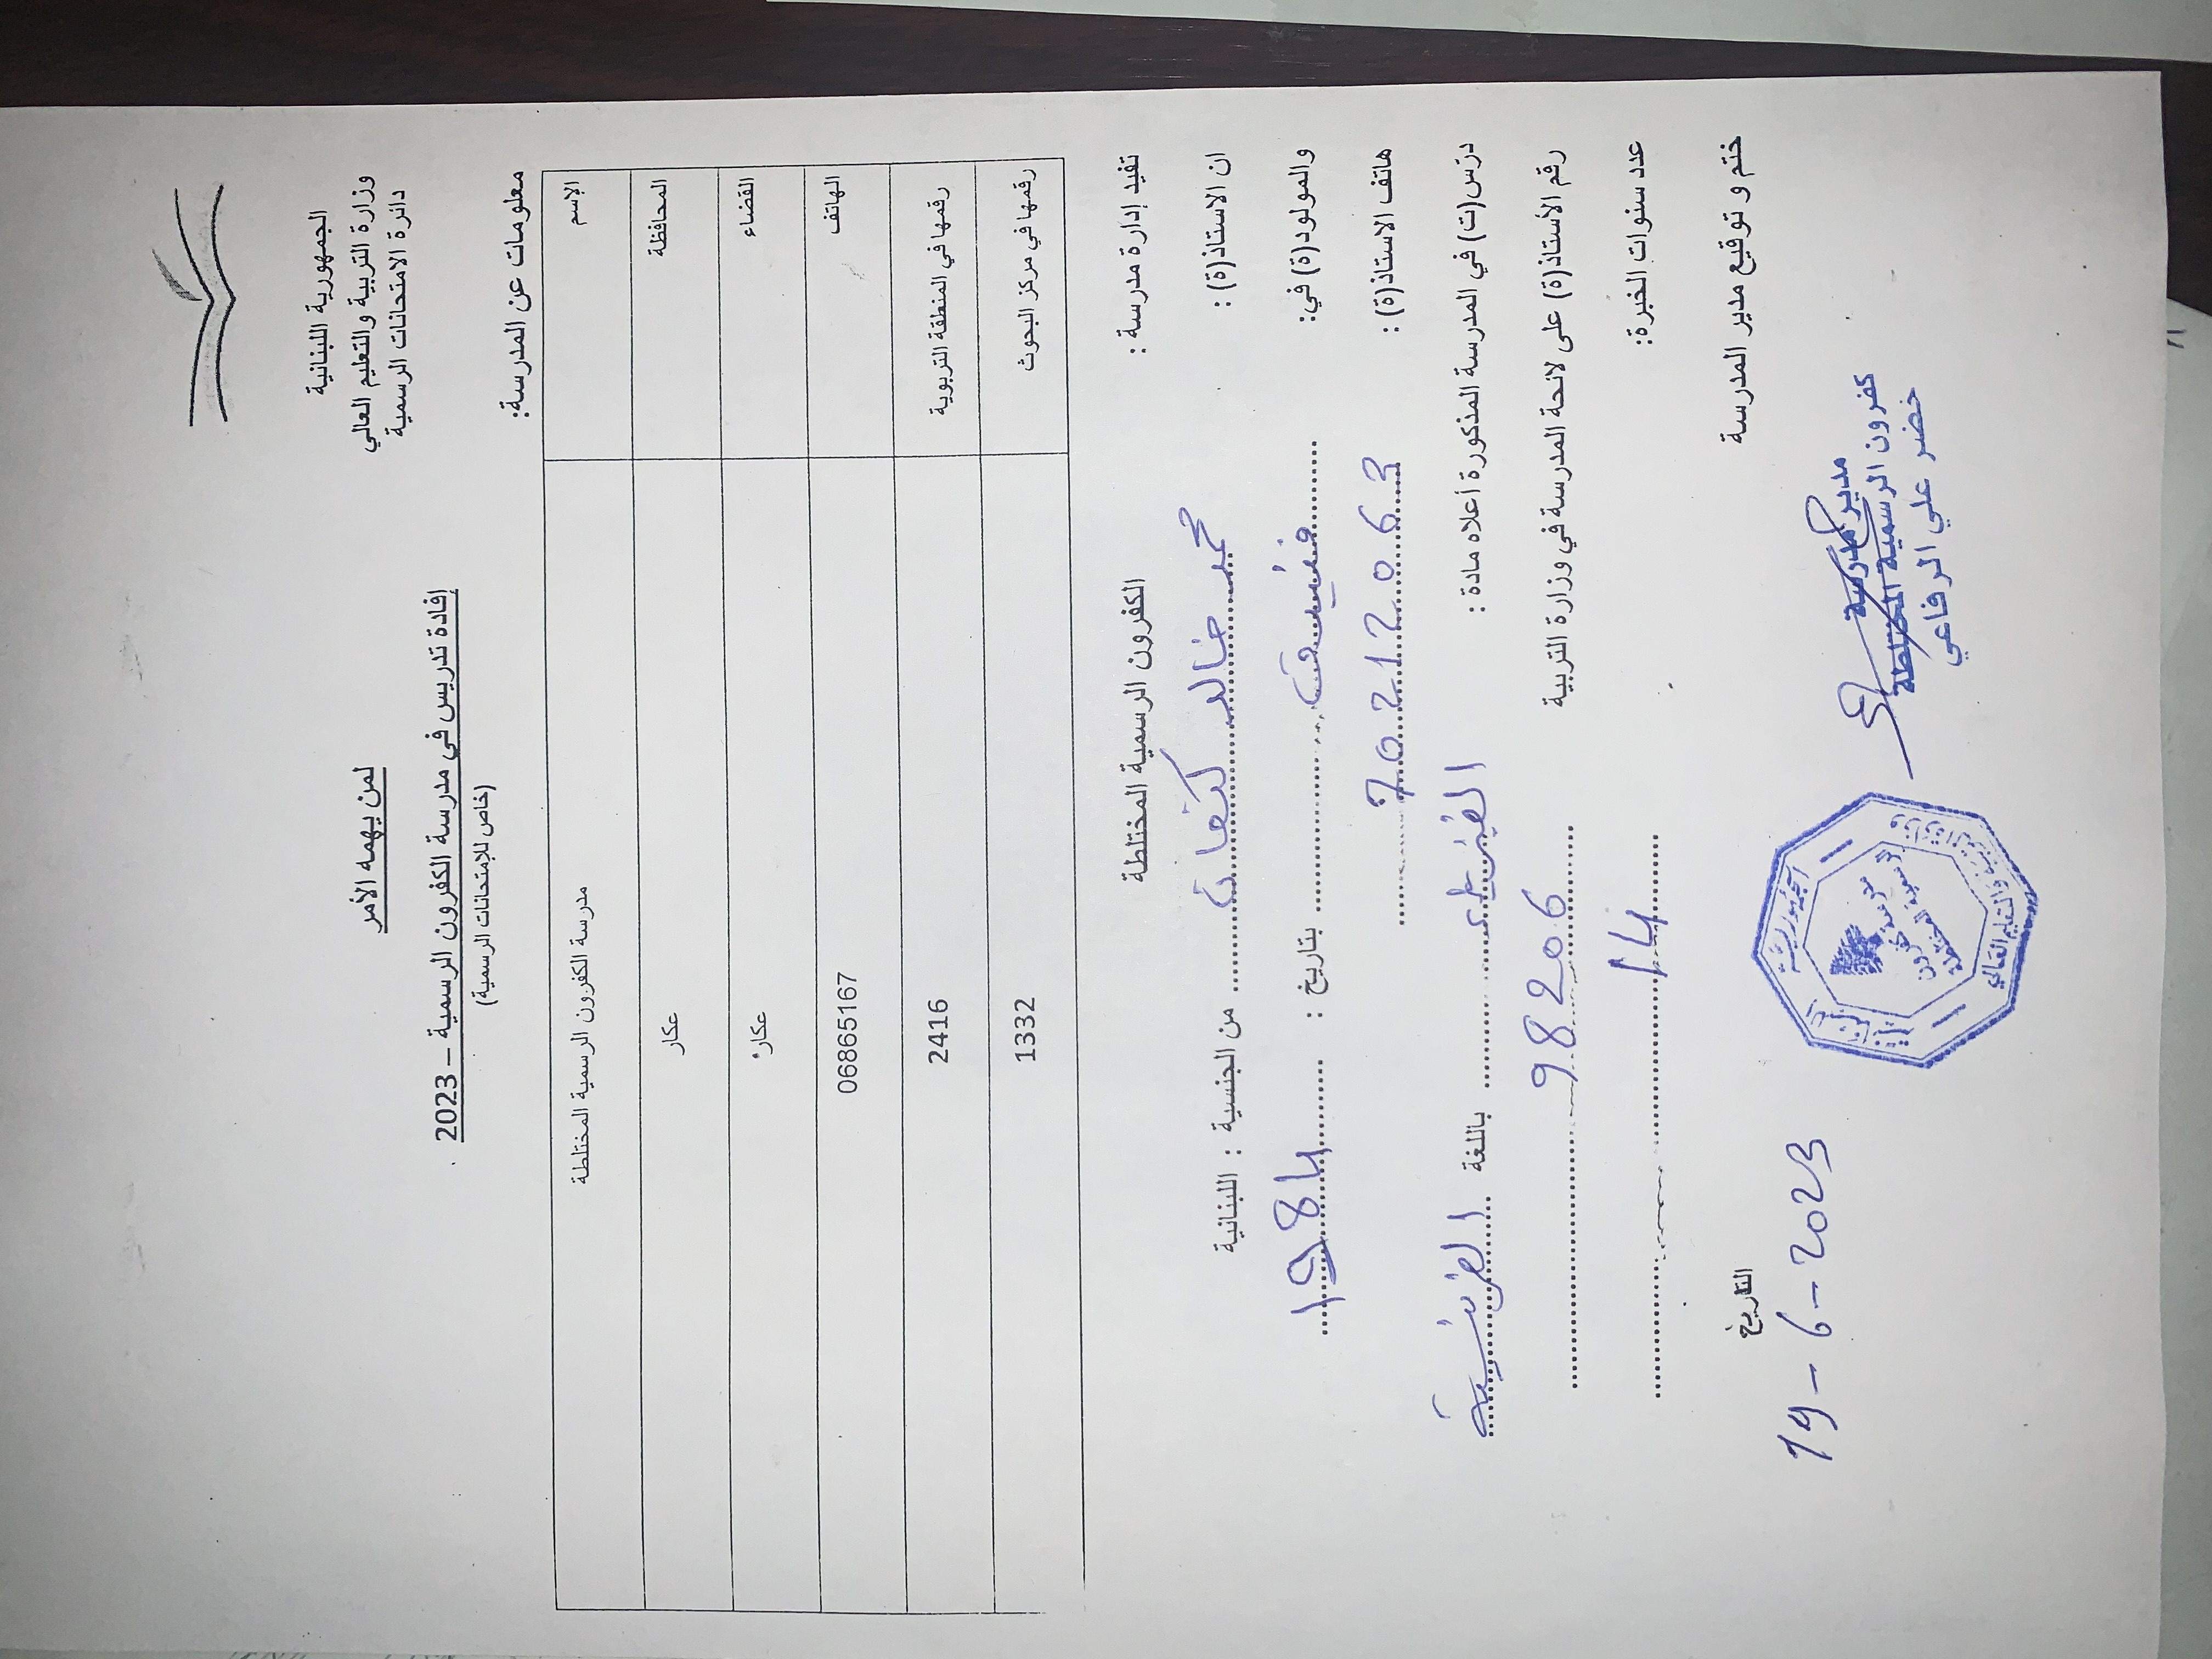 الجمهورية اللبنانية
وزارة التربية والتعليم العالي
دائرة الامتحانات الرسمية
لمن يهمه الأمر
إفادة تدريس في مدرسة الكفرون الرسمية – 2023
(خاص للإمتحانات الرسمية)
معلومات عن المدرسة:
الإسم مدرسة الكفرون الرسمية المختلطة
المحافظة عكار
القضاء عكار
الهاتف 06865167
رقمها في المنطقة التربوية 2416
رقمها في مركز البحوث 1332
تفيد إدارة مدرسة : الكفرون الرسمية المختلطة
ان الاستاذ(ة) : محمد خالد كنعان من الجنسية : اللبنانية
والمولود(ة) في: فنيدق بتاريخ : 1984
هاتف الاستاذ(ة) : 70212063
درّس(ت) في المدرسة المذكورة أعلاه مادة : الفيزياء باللغة الفرنسية
رقم الأستاذ(ة) على لائحة المدرسة في وزارة التربية 98206
عدد سنوات الخبرة: 14
ختم و توقيع مدير المدرسة
التاريخ
19 - 6 - 2023
مدير مدرسة
كفرون الرسمية المختلطة
خضر علي الرفاعي